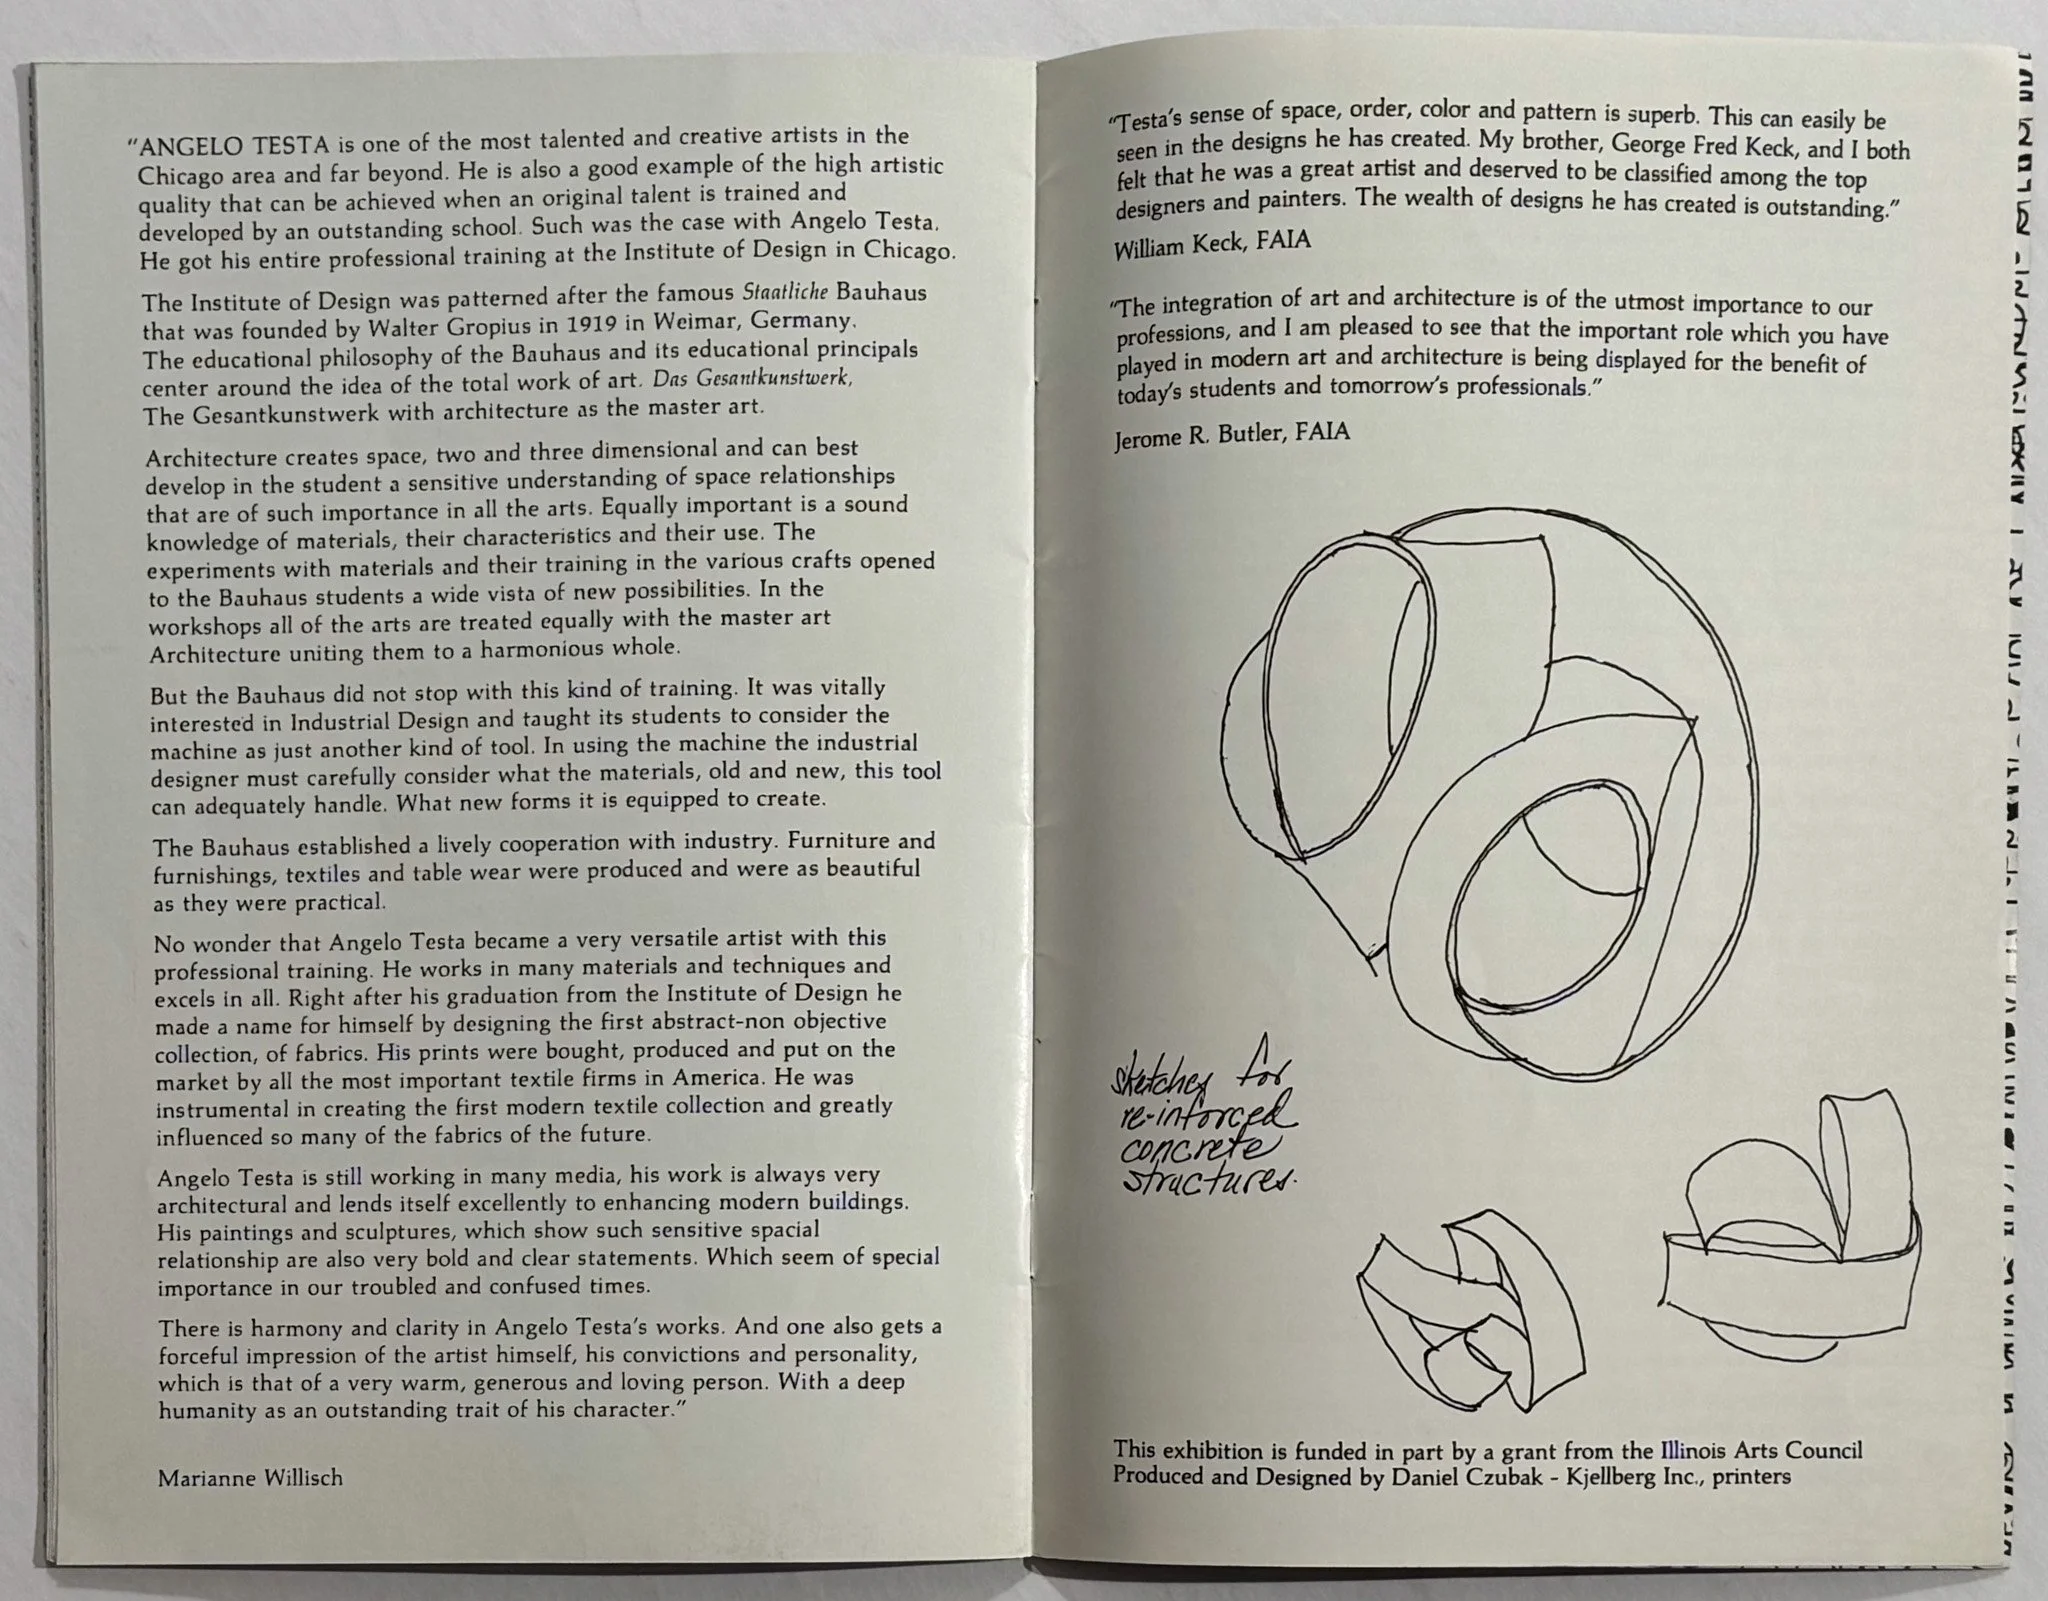 "ANGELO TESTA is one of the most talented and creative artists in the
Chicago area and far beyond. He is also a good example of the high artistic
quality that can be achieved when an original talent is trained and
developed by an outstanding school. Such was the case with Angelo Testa.
He got his entire professional training at the Institute of Design in Chicago.
The Institute of Design was patterned after the famous Staatliche Bauhaus
that was founded by Walter Gropius in 1919 in Weimar, Germany.
The educational philosophy of the Bauhaus and its educational principals
center around the idea of the total work of art. Das Gesantkunstwerk,
The Gesantkunstwerk with architecture as the master art.
Architecture creates space, two and three dimensional and can best
develop in the student a sensitive understanding of space relationships
that are of such importance in all the arts. Equally important is a sound
knowledge of materials, their characteristics and their use. The
experiments with materials and their training in the various crafts opened
to the Bauhaus students a wide vista of new possibilities. In the
workshops all of the arts are treated equally with the master art
Architecture uniting them to a harmonious whole.
But the Bauhaus did not stop with this kind of training. It was vitally
interested in Industrial Design and taught its students to consider the
machine as just another kind of tool. In using the machine the industrial
designer must carefully consider what the materials, old and new, this tool
can adequately handle. What new forms it is equipped to create.
The Bauhaus established a lively cooperation with industry. Furniture and
furnishings, textiles and table wear were produced and were as beautiful
as they were practical.
No wonder that Angelo Testa became a very versatile artist with this
professional training. He works in many materials and techniques and
excels in all. Right after his graduation from the Institute of Design he
made a name for himself by designing the first abstract-non objective
collection, of fabrics. His prints were bought, produced and put on the
market by all the most important textile firms in America. He was
instrumental in creating the first modern textile collection and greatly
influenced so many of the fabrics of the future.
Angelo Testa is still working in many media, his work is always very
architectural and lends itself excellently to enhancing modern buildings.
His paintings and sculptures, which show such sensitive spacial
relationship are also very bold and clear statements. Which seem of special
importance in our troubled and confused times.
There is harmony and clarity in Angelo Testa's works. And one also gets a
forceful impression of the artist himself, his convictions and personality,
which is that of a very warm, generous and loving person. With a deep
humanity as an outstanding trait of his character."
Marianne Willisch
"Testa's sense of space, order, color and pattern is superb. This can easily be
seen in the designs he has created. My brother, George Fred Keck, and I both
felt that he was a great artist and deserved to be classified among the top
designers and painters. The wealth of designs he has created is outstanding."
William Keck, FAIA
"The integration of art and architecture is of the utmost importance to our
professions, and I am pleased to see that the important role which you have
played in modern art and architecture is being displayed for the benefit of
today's students and tomorrow's professionals."
Jerome R. Butler, FAIA
sketches for
re-inforced
concrete
structures.
This exhibition is funded in part by a grant from the Illinois Arts Council
Produced and Designed by Daniel Czubak - Kjellberg Inc., printers